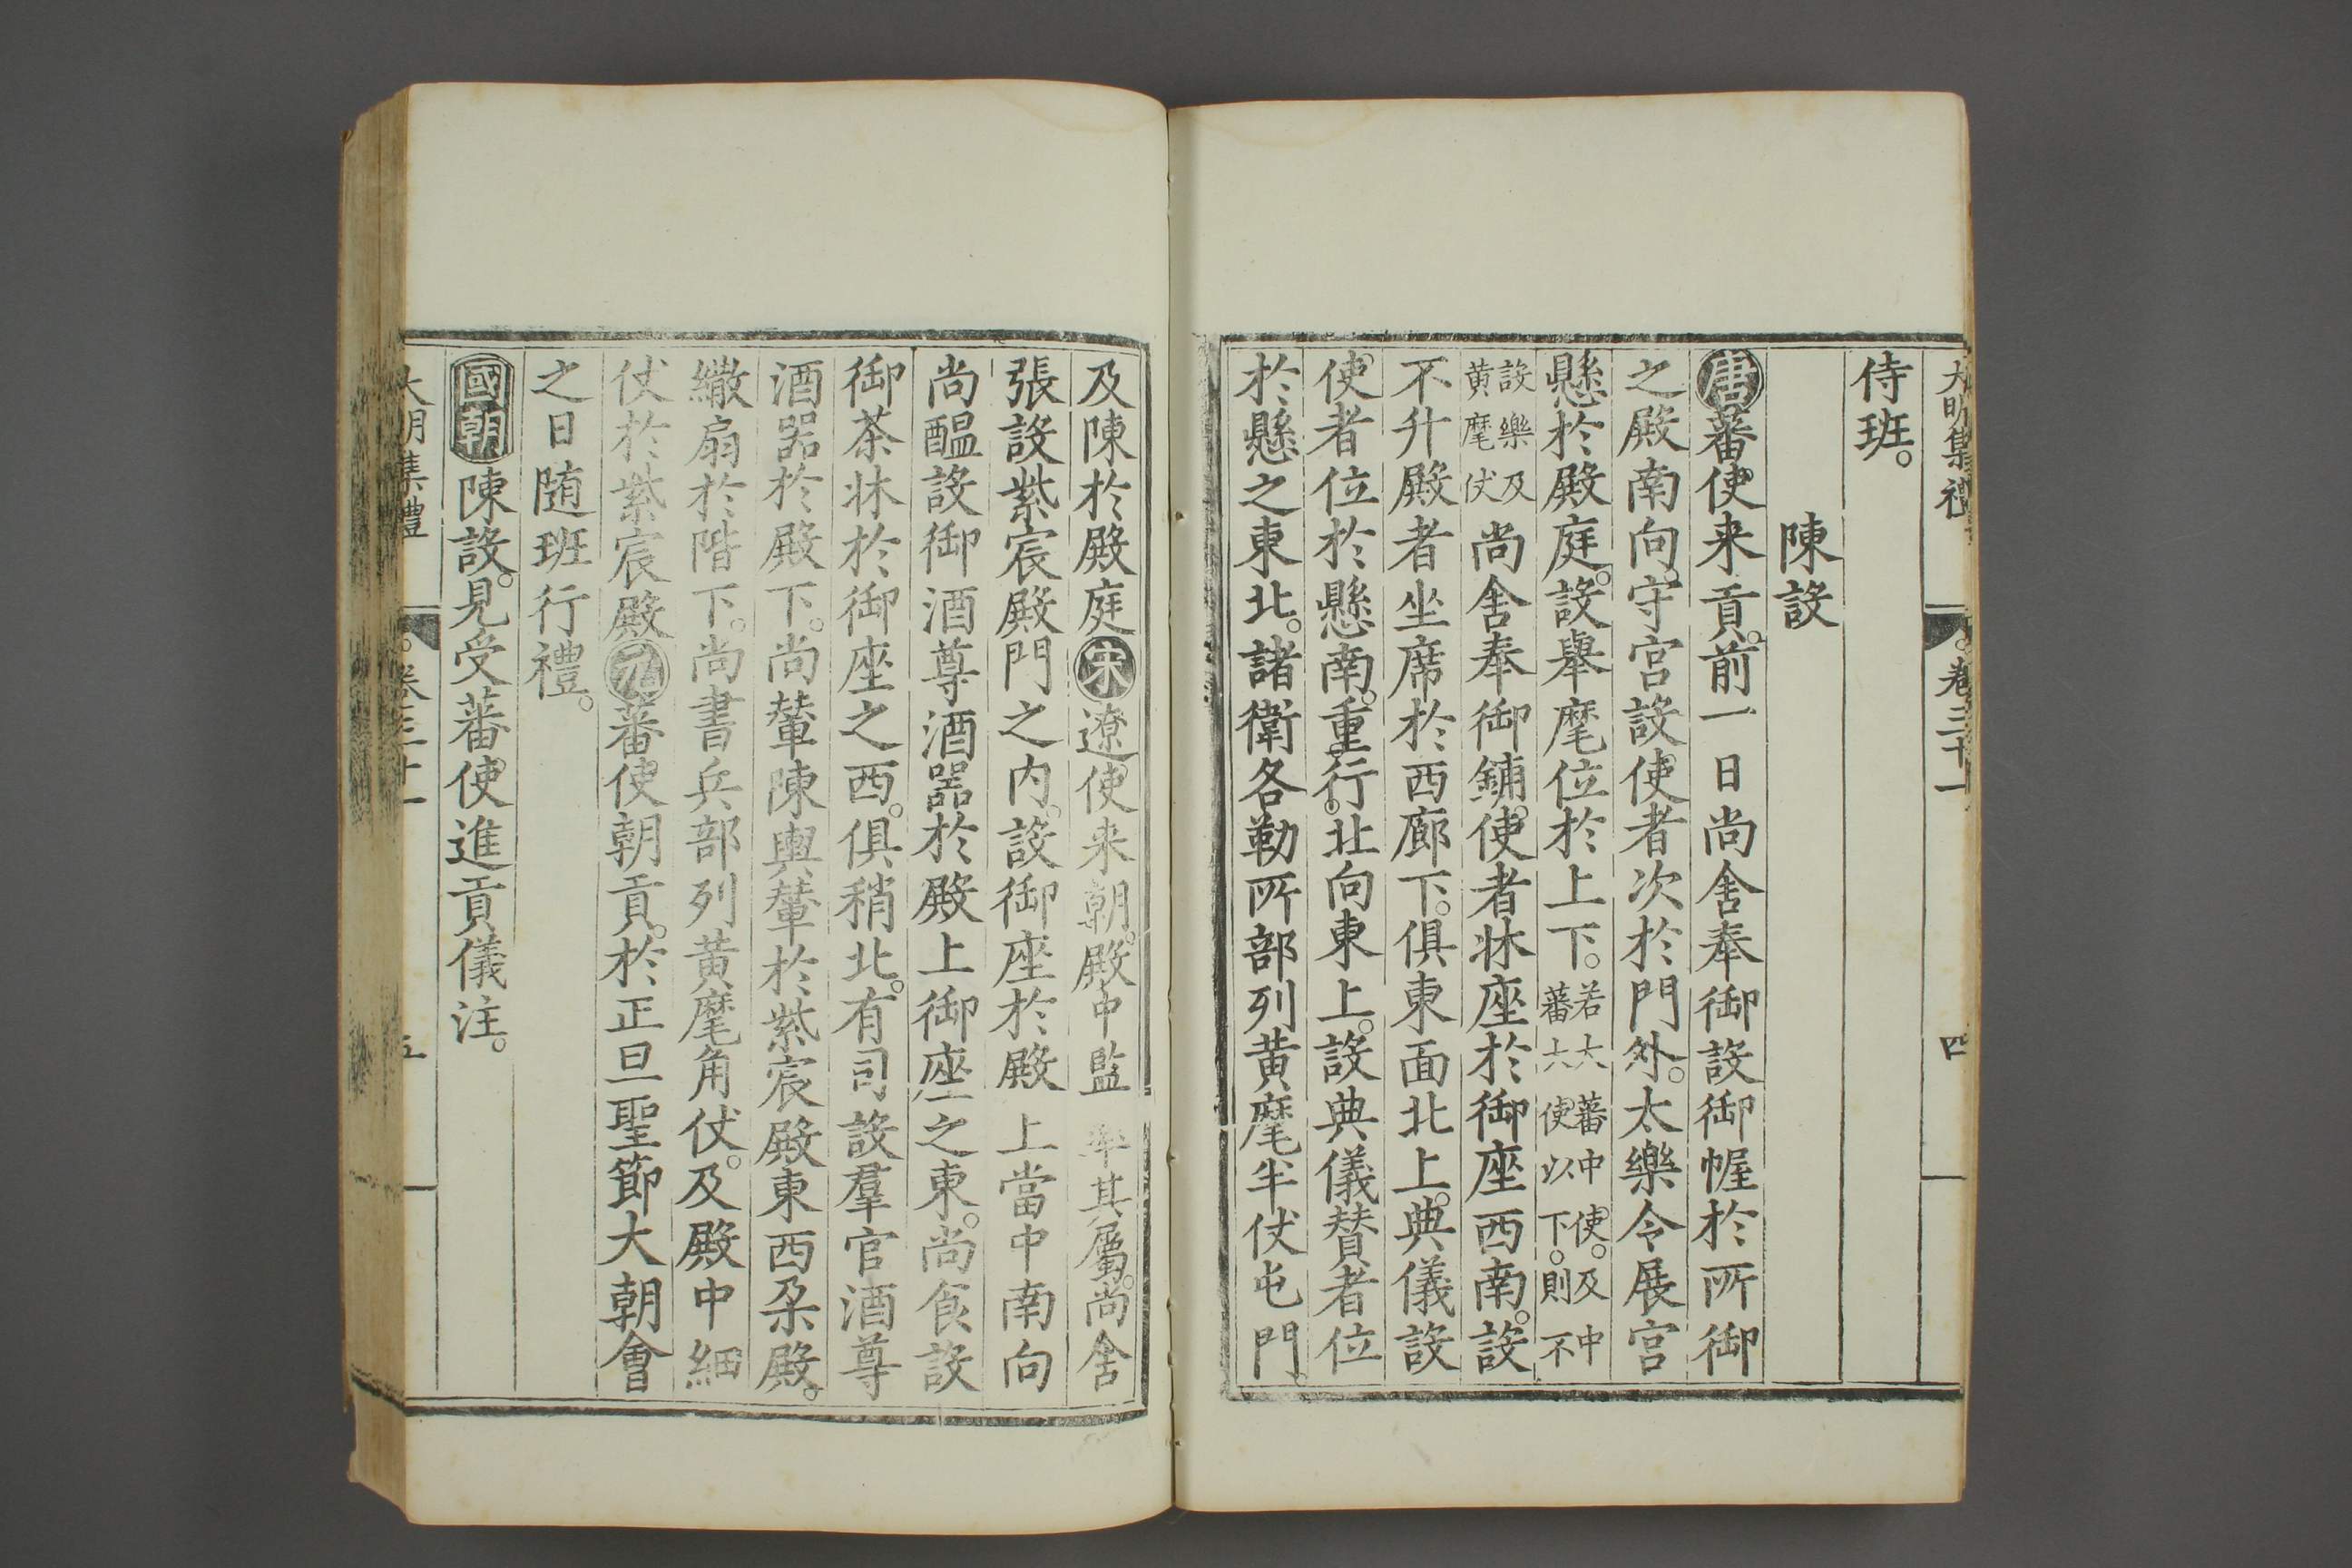 大明集禮 卷三十一 四
侍班。
陳設
唐蕃使来貢。前一日尚舍奉御設御幄於所御
之殿南向。守宮設使者次於門外。太樂令展宮
懸於殿庭。設舉麾位於上下。若大蕃中使。及中蕃大使以下。則不
設樂及黄麾仗尚舍奉御鋪使者牀座於御座西南。設
不升殿者坐席於西廊下。俱東面北上。典儀設
使者位於懸南。重行。北向東上。設典儀賛者位
於懸之東北。諸衛各勒所部列黄麾半仗屯門。
及陳於殿庭宋遼使来朝。殿中監率其屬。尚舍
張設紫宸殿門之内。設御座於殿上當中南向
尚醖設御酒尊酒器於殿上御座之東。尚食設
御茶牀於御座之西。俱稍北。有司設羣官酒尊
酒器於殿下。尚輦陳輿輦於紫宸殿東西朶殿。
繖扇於階下。尚書兵部列黄麾角仗。及殿中細
仗於紫宸殿元蕃使朝貢。於正旦聖節大朝會
之日随班行禮。
國朝陳設。見受蕃使進貢儀注。
大明集禮 卷三十一 五